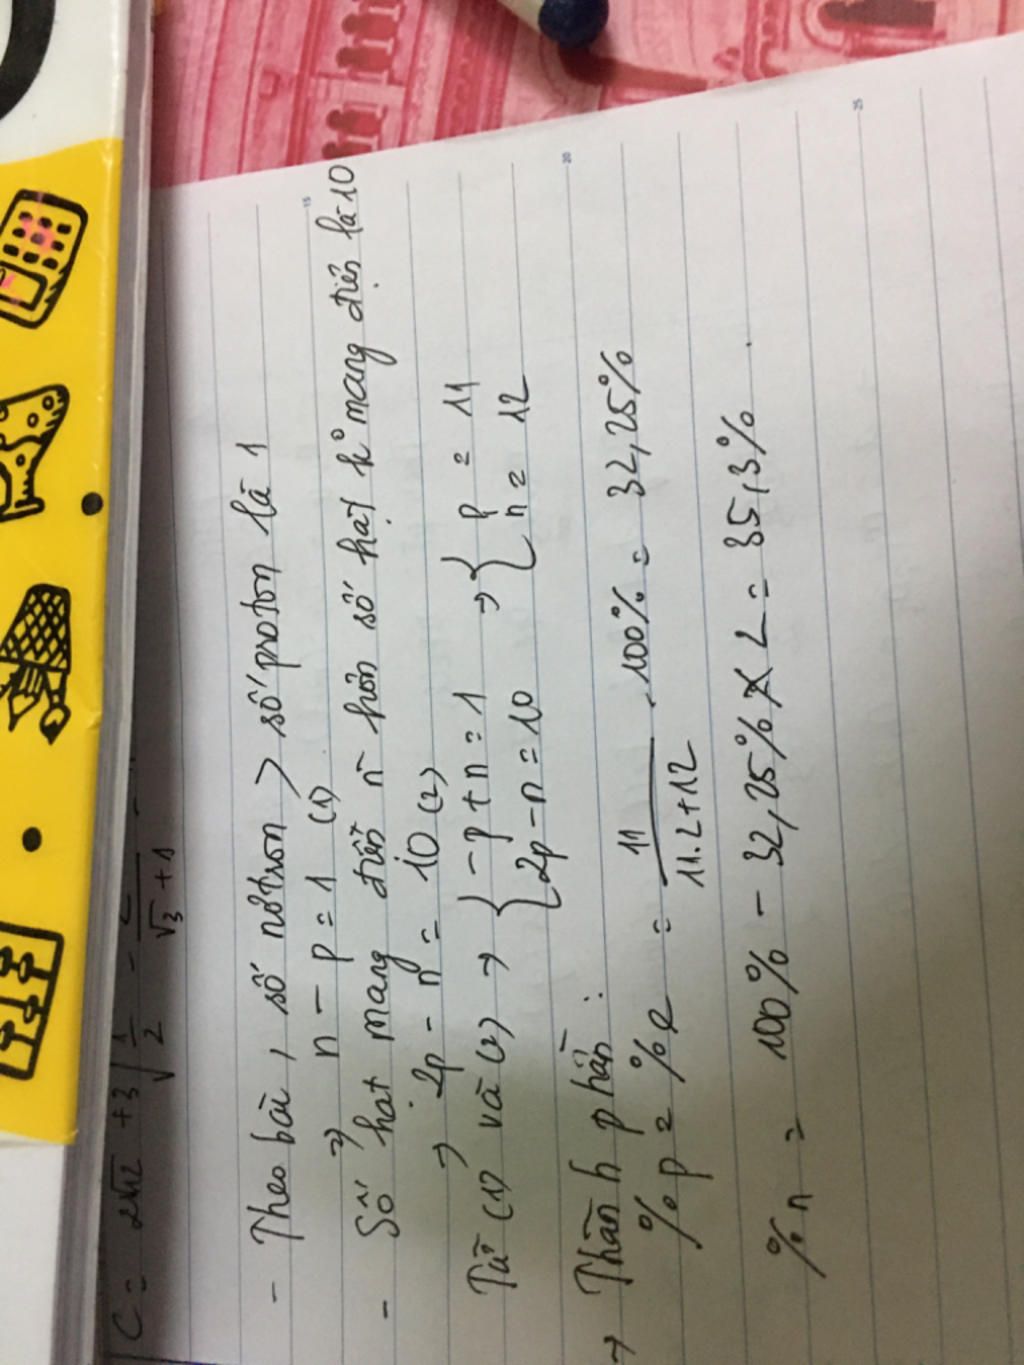 C = 2√12 + 3√(1/2) - 2/(√3 + 1) -
- Theo bài, số nơtron > số proton là 1
=> n - p = 1 (1)
- Số hạt mang điện n~ hơn số hạt k° mang điện là 10
→ 2p - n = 10 (2)
Từ (1) và (2) → { -p + n = 1 → { p = 11
2p - n = 10 n = 12
→ Thành phần :
% p = % e = 11/(11.2+12) . 100% = 32,25%
% n = 100% - 32,25% x 2 = 35,3%
15
20
25